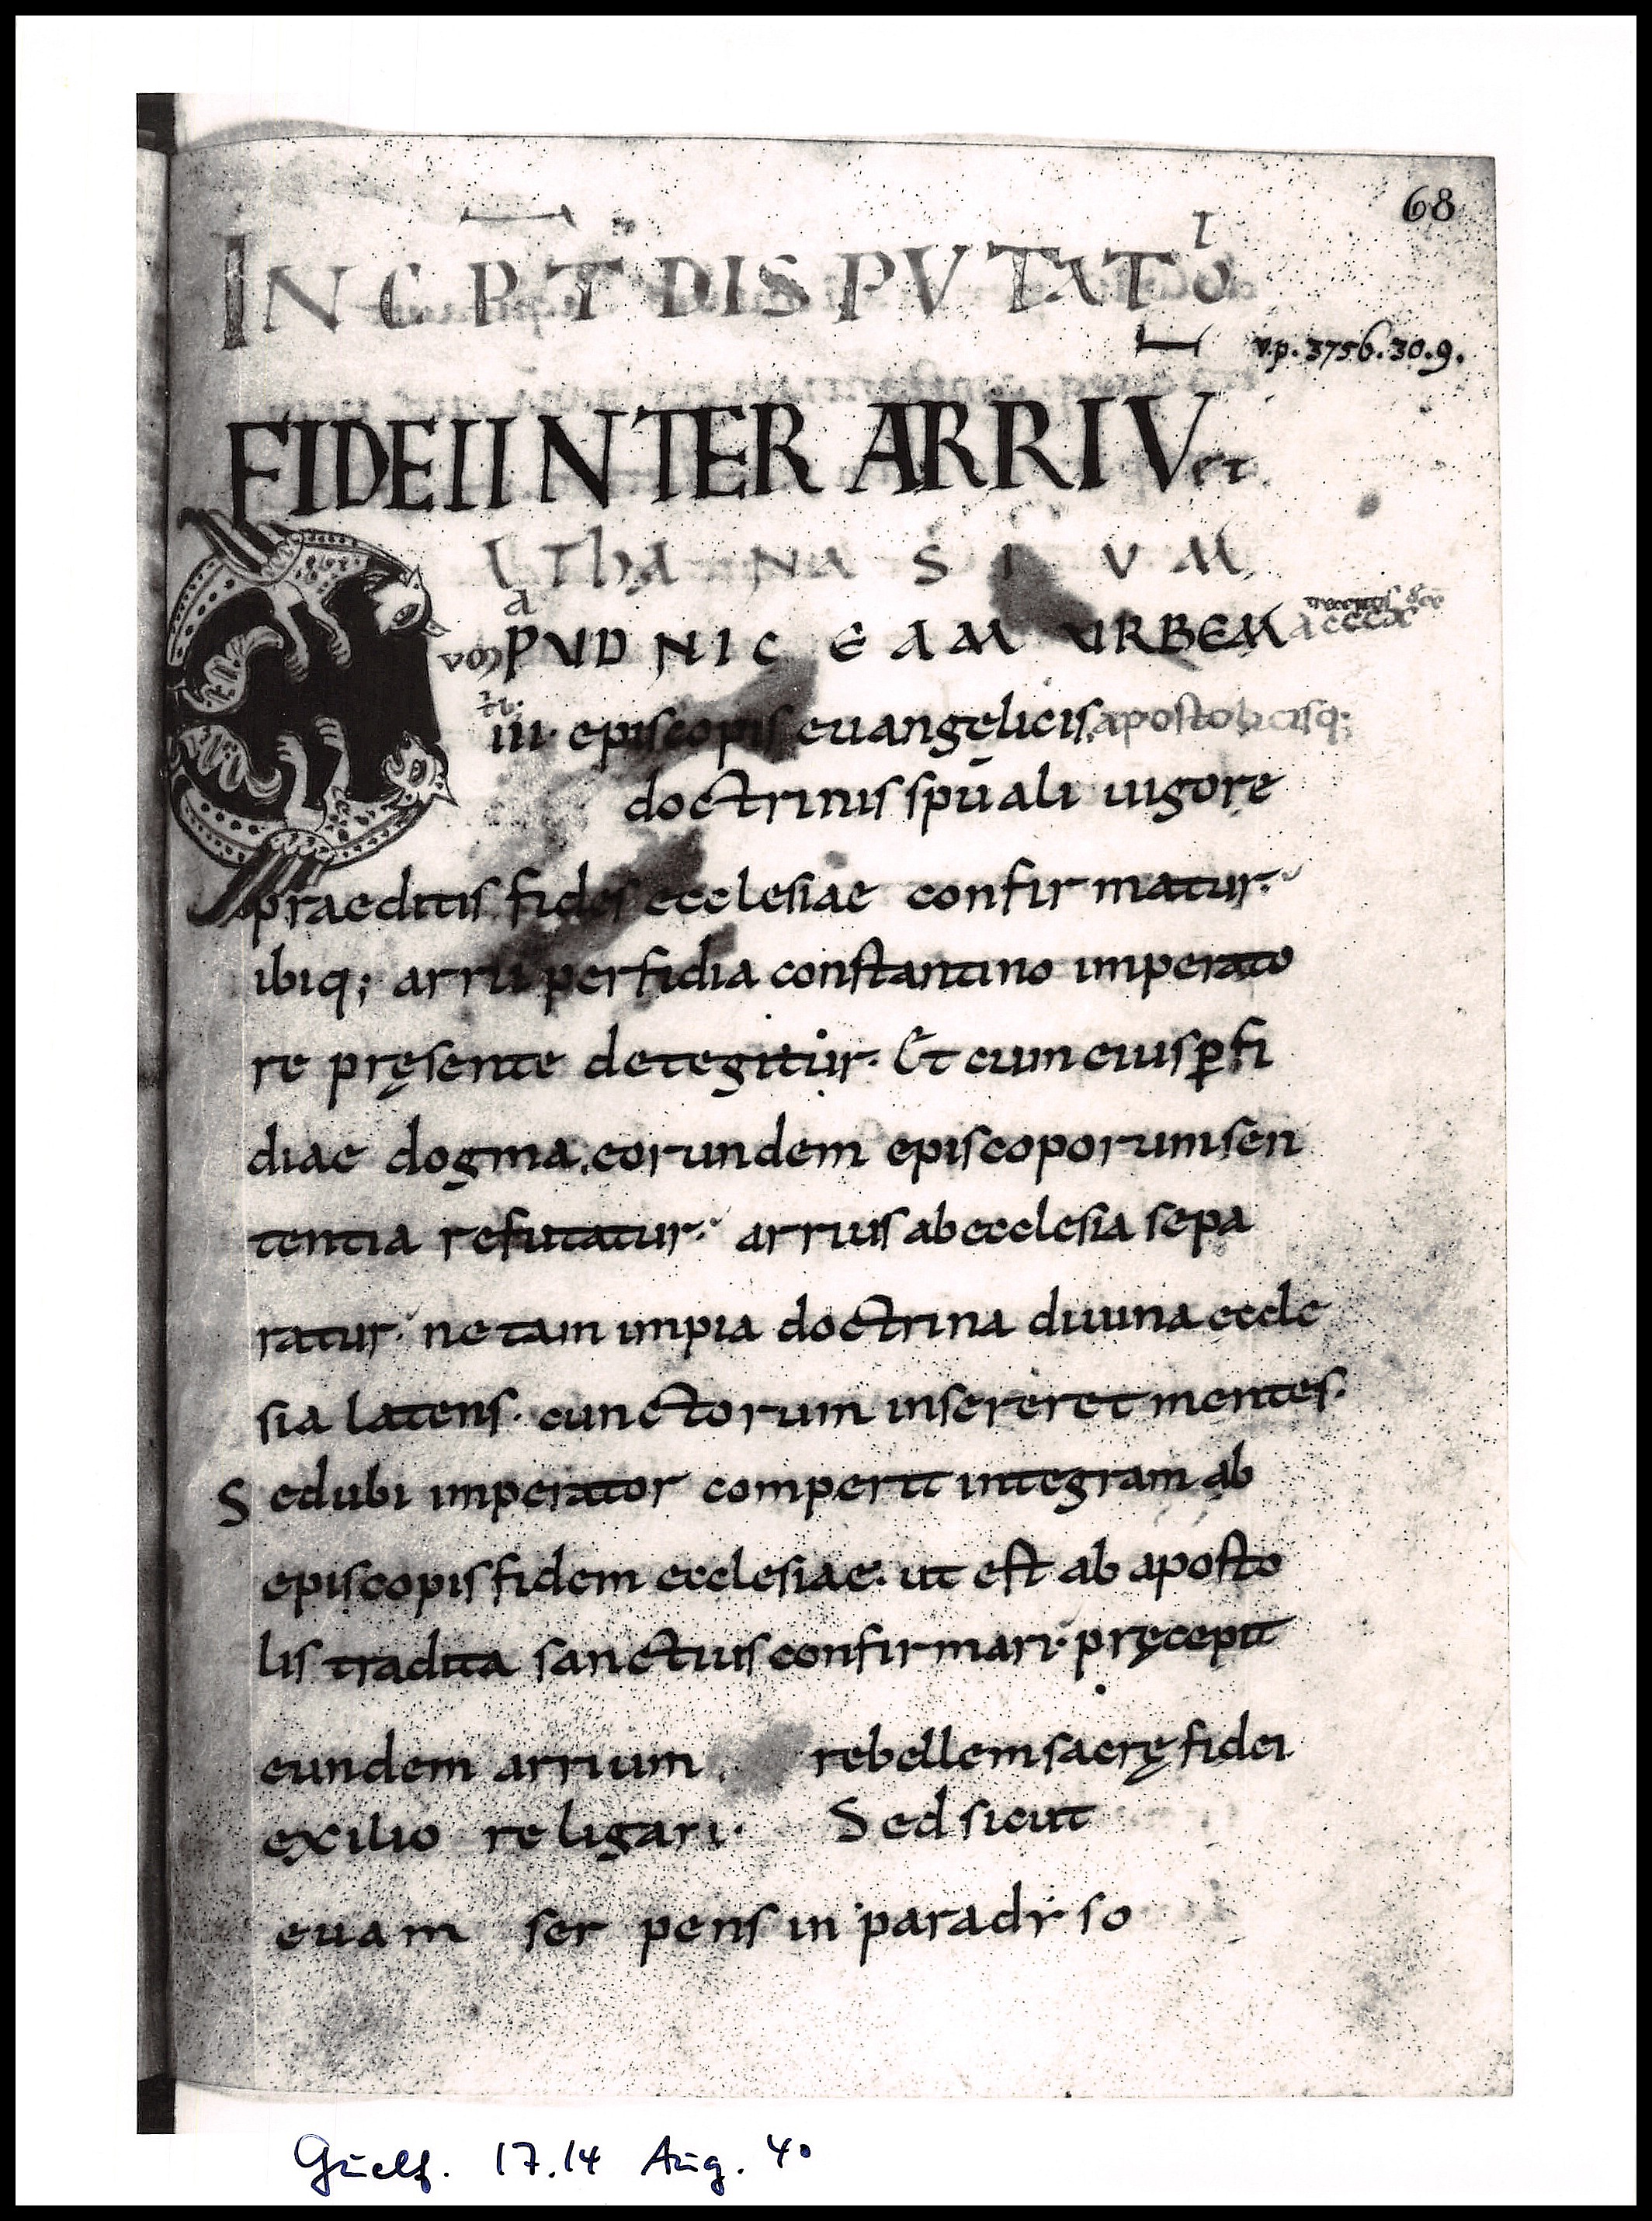 68
INCPT DISPUTATIO
v.p. 3756.30.9.
FIDEI INTER ARRIV et
AThANASIVM
VŌ APUD NICEAM URBEM A CCCX
iii. episcopis euangęlicis apostolicisq;
doctrinis spūali uigore
praeditis fides ecclesiae confirmatur.
ibiq; arrii perfidia constantino imperato
re pręsente detegitur. Et cum eius ꝑfi
diae dogma, eorundem episcoporum sen
tentia refutatur. arrius ab ecclesia sepa
ratur. ne tam impia doctrina diuina eccle
sia latens. cunctorum insereret mentes.
Sed ubi imperator comperit integram ab
episcopis fidem ecclesiae. ut est ab aposto
lis tradita sanctius confirmari. pręcepit
eundem arrium rebellem sacrę fidei
exilio religari. Sed sicut
euam serpens in paradiso
Guelf. 17.14 Aug. 4°